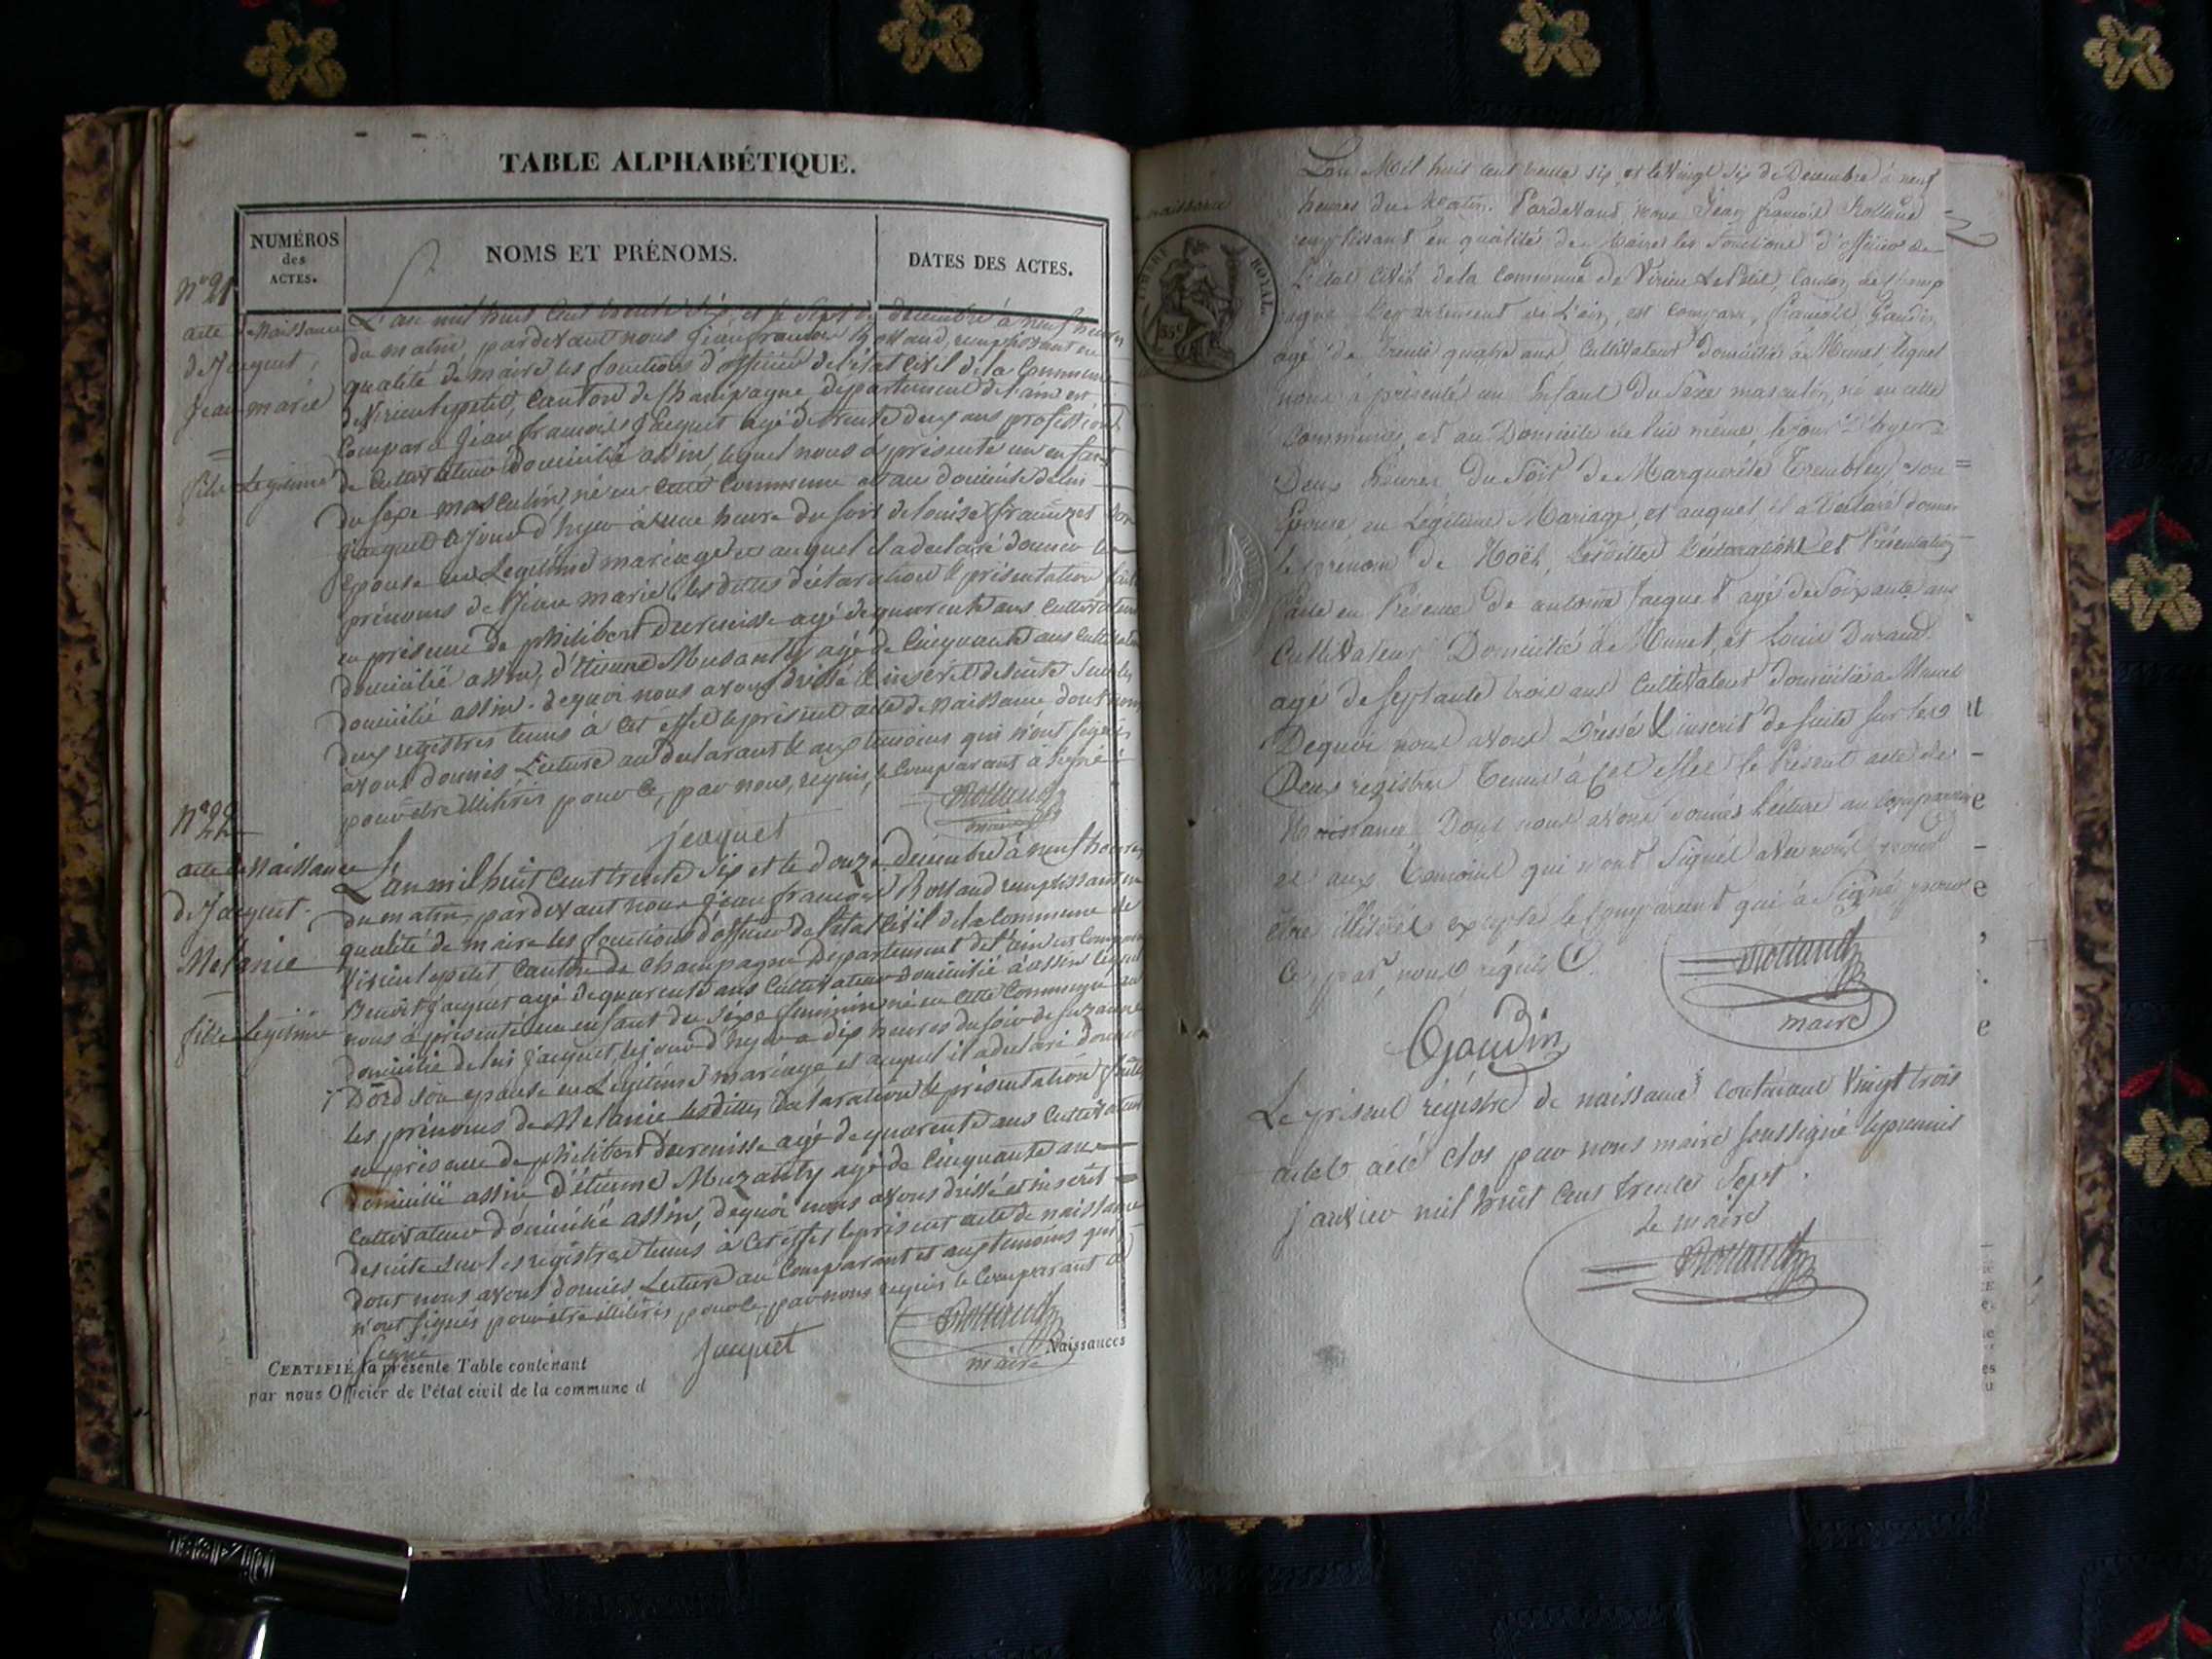 TABLE ALPHABÉTIQUE.
NUMÉROS
des
ACTES.
NOMS ET PRÉNOMS.
DATES DES ACTES.
n° 21
acte de Naissance
de Jacquet,
Jean marie
fils Legitime
L'an mil huit Cent trente Six, et le Sept de decembre à neuf heures
du matin, pardevant nous jean francois Rolland, remplissant en
qualité de maire les fonctions d'officier de l'état Civil de la Commune
de Virieu lepetit, Canton de Champagne, departement de l'ain est
Comparu jean francois Jacquet agé de trente deux ans profession
de Cultivateur domicilié assin, lequel nous à présenté un enfant
du sexe masculin, né en Cette Commune et au domicile de lui
jacquet le jour d'hyer à une heure du soir de louise
Epouse en Legitime mariage et auquel il a declaré donner les
prénoms de Jean marie. les dittes déclaration & présentation faite
en présence de philibert Ducruisse agé de quarente ans Cultivateur
domicilié assin, d'Etienne Musanty agé de Cinquante ans Cultivateur
domicilié assin. de quoi nous avons dréssé & inscrit de suite sur les
deux registres tenus à Cet effet le présent acte de naissance dont nous
avons donnés Lecture au declarant & aux temoins qui n'ont signés
pour être illitérés pour Ce, par nous, requis, le Comparant à signé
jacquet
Rolland
maire
N° 22
acte de Naissance
de Jacquet.
Melanie
fille Legitime
L'an mil huit Cent trente Six et le douze Decembre à neuf heures
du matin pardevant nous jean francois Rolland remplissant en
qualité de maire les fonctions d'officier de l'état Civil de la Commune de
Virieu lepetit, Canton de Champagne Département de l'ain est Comparu
Benoit Jacquet agé de quarente ans Cultivateur domicilié à assin lequel
nous à présenté un enfant du séxe feminin né en Cette Commune au
domicilié de lui jacquet, le jour d'hyer à dix heures du soir de suzanne
Dord son epouse en Legitime mariage et auquel il a declaré donner
les prénoms de Melanie lesdittes declaration & présentation faites
en présence de philibert Ducruisse agé de quarente ans Cultivateur
domicilié assin d'étienne Muzanty agé de Cinquante ans
Cultivateur domicilié assin, de quoi nous avons dréssé et inscrit
de suite sur les registres tenus à Cet effet le présent acte de naissance
dont nous avons donnés Lecture au Comparant et aux temoins qui
n'ont signés pour être illitérés pour Ce, par nous requis le Comparant à
signé
jacquet
Rolland
maire
Naissances
CERTIFIÉ la présente Table contenant
par nous Officier de l'état civil de la commune d
naissance
TIMBRE ROYAL
35c
L'an Mil huit cent trente six, et le Vingt Six de Decembre à neuf
heures du Matin. Pardevant nous Jean francois Rolland
remplissant en qualité de Maire les fonctions d'officier de
L'état Civil de la Commune de Virieu Le Petit, Canton de Champ
agne Departement de L'ain, est Comparu, francois Gaudin
agé de trente quatre ans, Cultivateur Domicilié à Munet, lequel
nous à présenté un Enfant du Sexe masculin, né en cette
Commune, et au Domicile de lui même, le jour d'hyer
Deux heures du Soir de Marguerite Trembley son
Epouse, en Légitime Mariage, et auquel il a déclaré donner
le prenom de Noël, Lesdittes Déclaration et Présentation
faite en Présence de antoine Jacquet agé de Soixante ans
Cultivateur Domicilié à Munet, et Louis Durand
agé de Septante trois ans Cultivateur domicilié à Munet
Dequoi nous avons Dréssé & inscrit de suite sur les
Deux registres tenus à Cet effet le Présent acte de
Naissance Dont nous avons donnés Lecture au Comparant
et aux temoins qui n'ont Signés avec nous pour
être illiteres excepté le Comparant qui à Signé, pour
Ce, par nous réquis.
Gaudin
Rolland
maire
Le présent régistre de naissance contenant Vingt trois
actes a été clos par nous maire soussigné le premier
janvier mil huit Cent trente Sept.
Le maire
Rolland